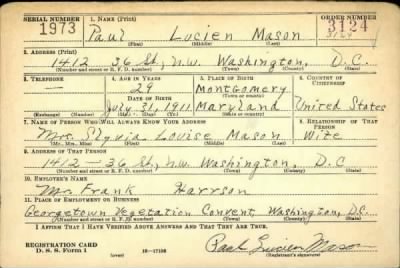 SERIAL NUMBER 1. NAME (Print) ORDER NUMBER
1973 Paul Lucien Mason 3124
(First) (Middle) (Last)
2. ADDRESS (Print)
1412 36 St, N.W. Washington, D.C.
(Number and street or R. F. D. number) (Town) (County) (State)
3. TELEPHONE 4. AGE IN YEARS 5. PLACE OF BIRTH 6. COUNTRY OF CITIZENSHIP
— 29 Montgomery
DATE OF BIRTH (Town or county)
July 31, 1911 Maryland United States
(Exchange) (Number) (Mo.) (Day) (Yr.) (State or country)
7. NAME OF PERSON WHO WILL ALWAYS KNOW YOUR ADDRESS 8. RELATIONSHIP OF THAT PERSON
Mrs. Slyvia Louise Mason Wife
(Mr., Mrs., Miss) (First) (Middle) (Last)
9. ADDRESS OF THAT PERSON
1412 — 36 St., N.W. Washington, D.C
(Number and street or R. F. D. number) (Town) (County) (State)
10. EMPLOYER'S NAME
Mr. Frank Harrson
11. PLACE OF EMPLOYMENT OR BUSINESS
Georgetown Vegetation Convent, Washington, D.C.
(Number and street or R. F. D. number) (Town) (County) (State)
I AFFIRM THAT I HAVE VERIFIED ABOVE ANSWERS AND THAT THEY ARE TRUE.
REGISTRATION CARD
D. S. S. Form 1 (over) 16—17105 Paul Lucien Mason